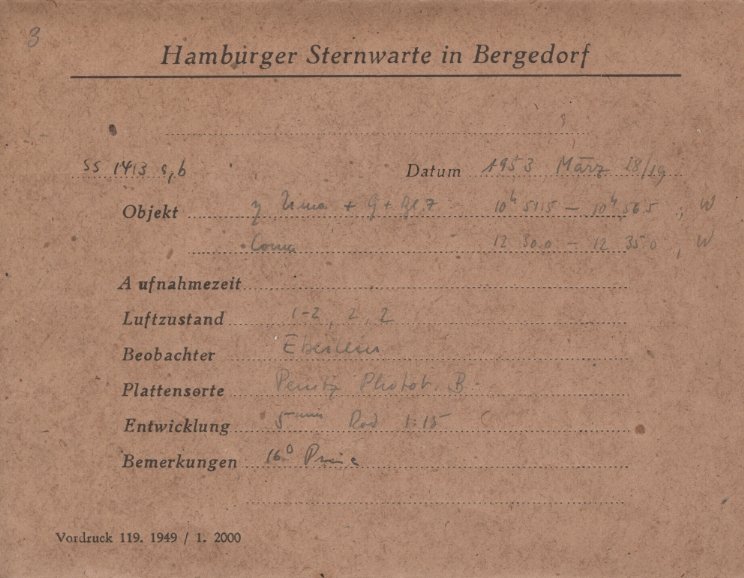 3
Hamburger Sternwarte in Bergedorf
SS 1413 a,b Datum 1953 März 18/19
Objekt γ Uma + G + 10h 51.5 – 10h 56.5, W
Coma 12 30.0 – 12 35.0, W
Aufnahmezeit
Luftzustand 1-2, 2, 2
Beobachter
Plattensorte Perutz Photot. B
Entwicklung 5 min Rod 1:15
Bemerkungen 16°
Vordruck 119. 1949 / 1. 2000